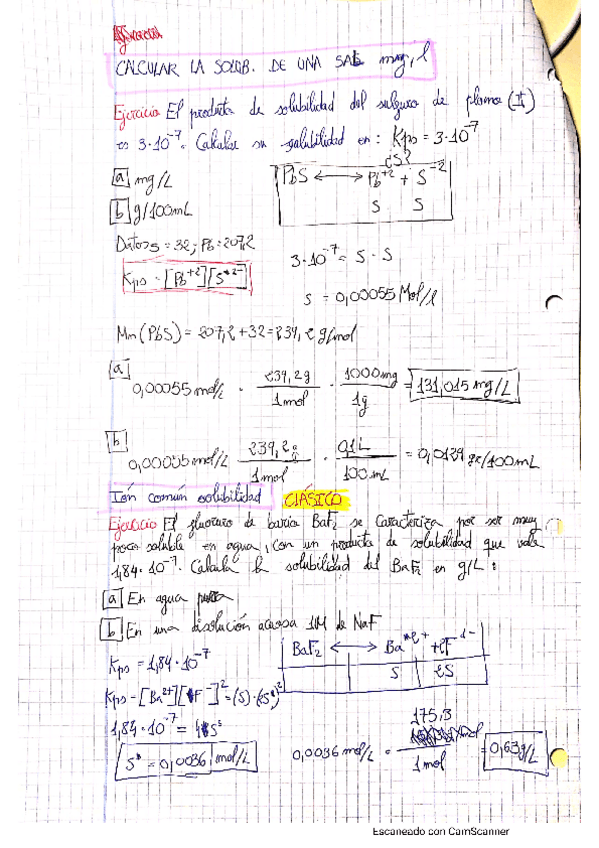 CALCULAR LA SOLUB. DE UNA SAL mg, l
Ejercicio El producto de solubilidad del sulfuro de plomo (II)
es 3·10⁻⁷. Calcular su solubilidad en: Kps = 3·10⁻⁷
¿S?
a mg/L
PbS ⟷ Pb⁺² + S⁻²
b g/100mL
S S
Datos S = 32; Pb = 207,2
3·10⁻⁷ = S · S
Kps = [Pb⁺²][S²⁻]
S = 0,00055 Mol/l
Mm (PbS) = 207,2 + 32 = 239,2 g/mol
a
0,00055 mol/L · 239,2g/1mol · 1000mg/1g = 131,015 mg/L
b
0,00055 mol/L · 239,2g/1mol · 0,1L/100mL = 0,0129 gr/100mL
Ión común solubilidad CLÁSICO
Ejercicio El fluoruro de bario BaF₂ se caracteriza por ser muy
poco soluble en agua, con un producto de solubilidad que vale
1,84·10⁻⁷. Calcula la solubilidad del BaF₂ en g/L:
a En agua pura
b En una disolución acuosa 1M de NaF
BaF₂ ⟷ Ba²⁺ + 2F¹⁻
S 2S
Kps = 1,84·10⁻⁷
Kps = [Ba²⁺][F⁻]² = (S)·(2S)²
1,84·10⁻⁷ = 4S³
S = 0,0036 mol/L
0,0036 mol/L · 175,3/1mol = 0,63g/L
Escaneado con CamScanner